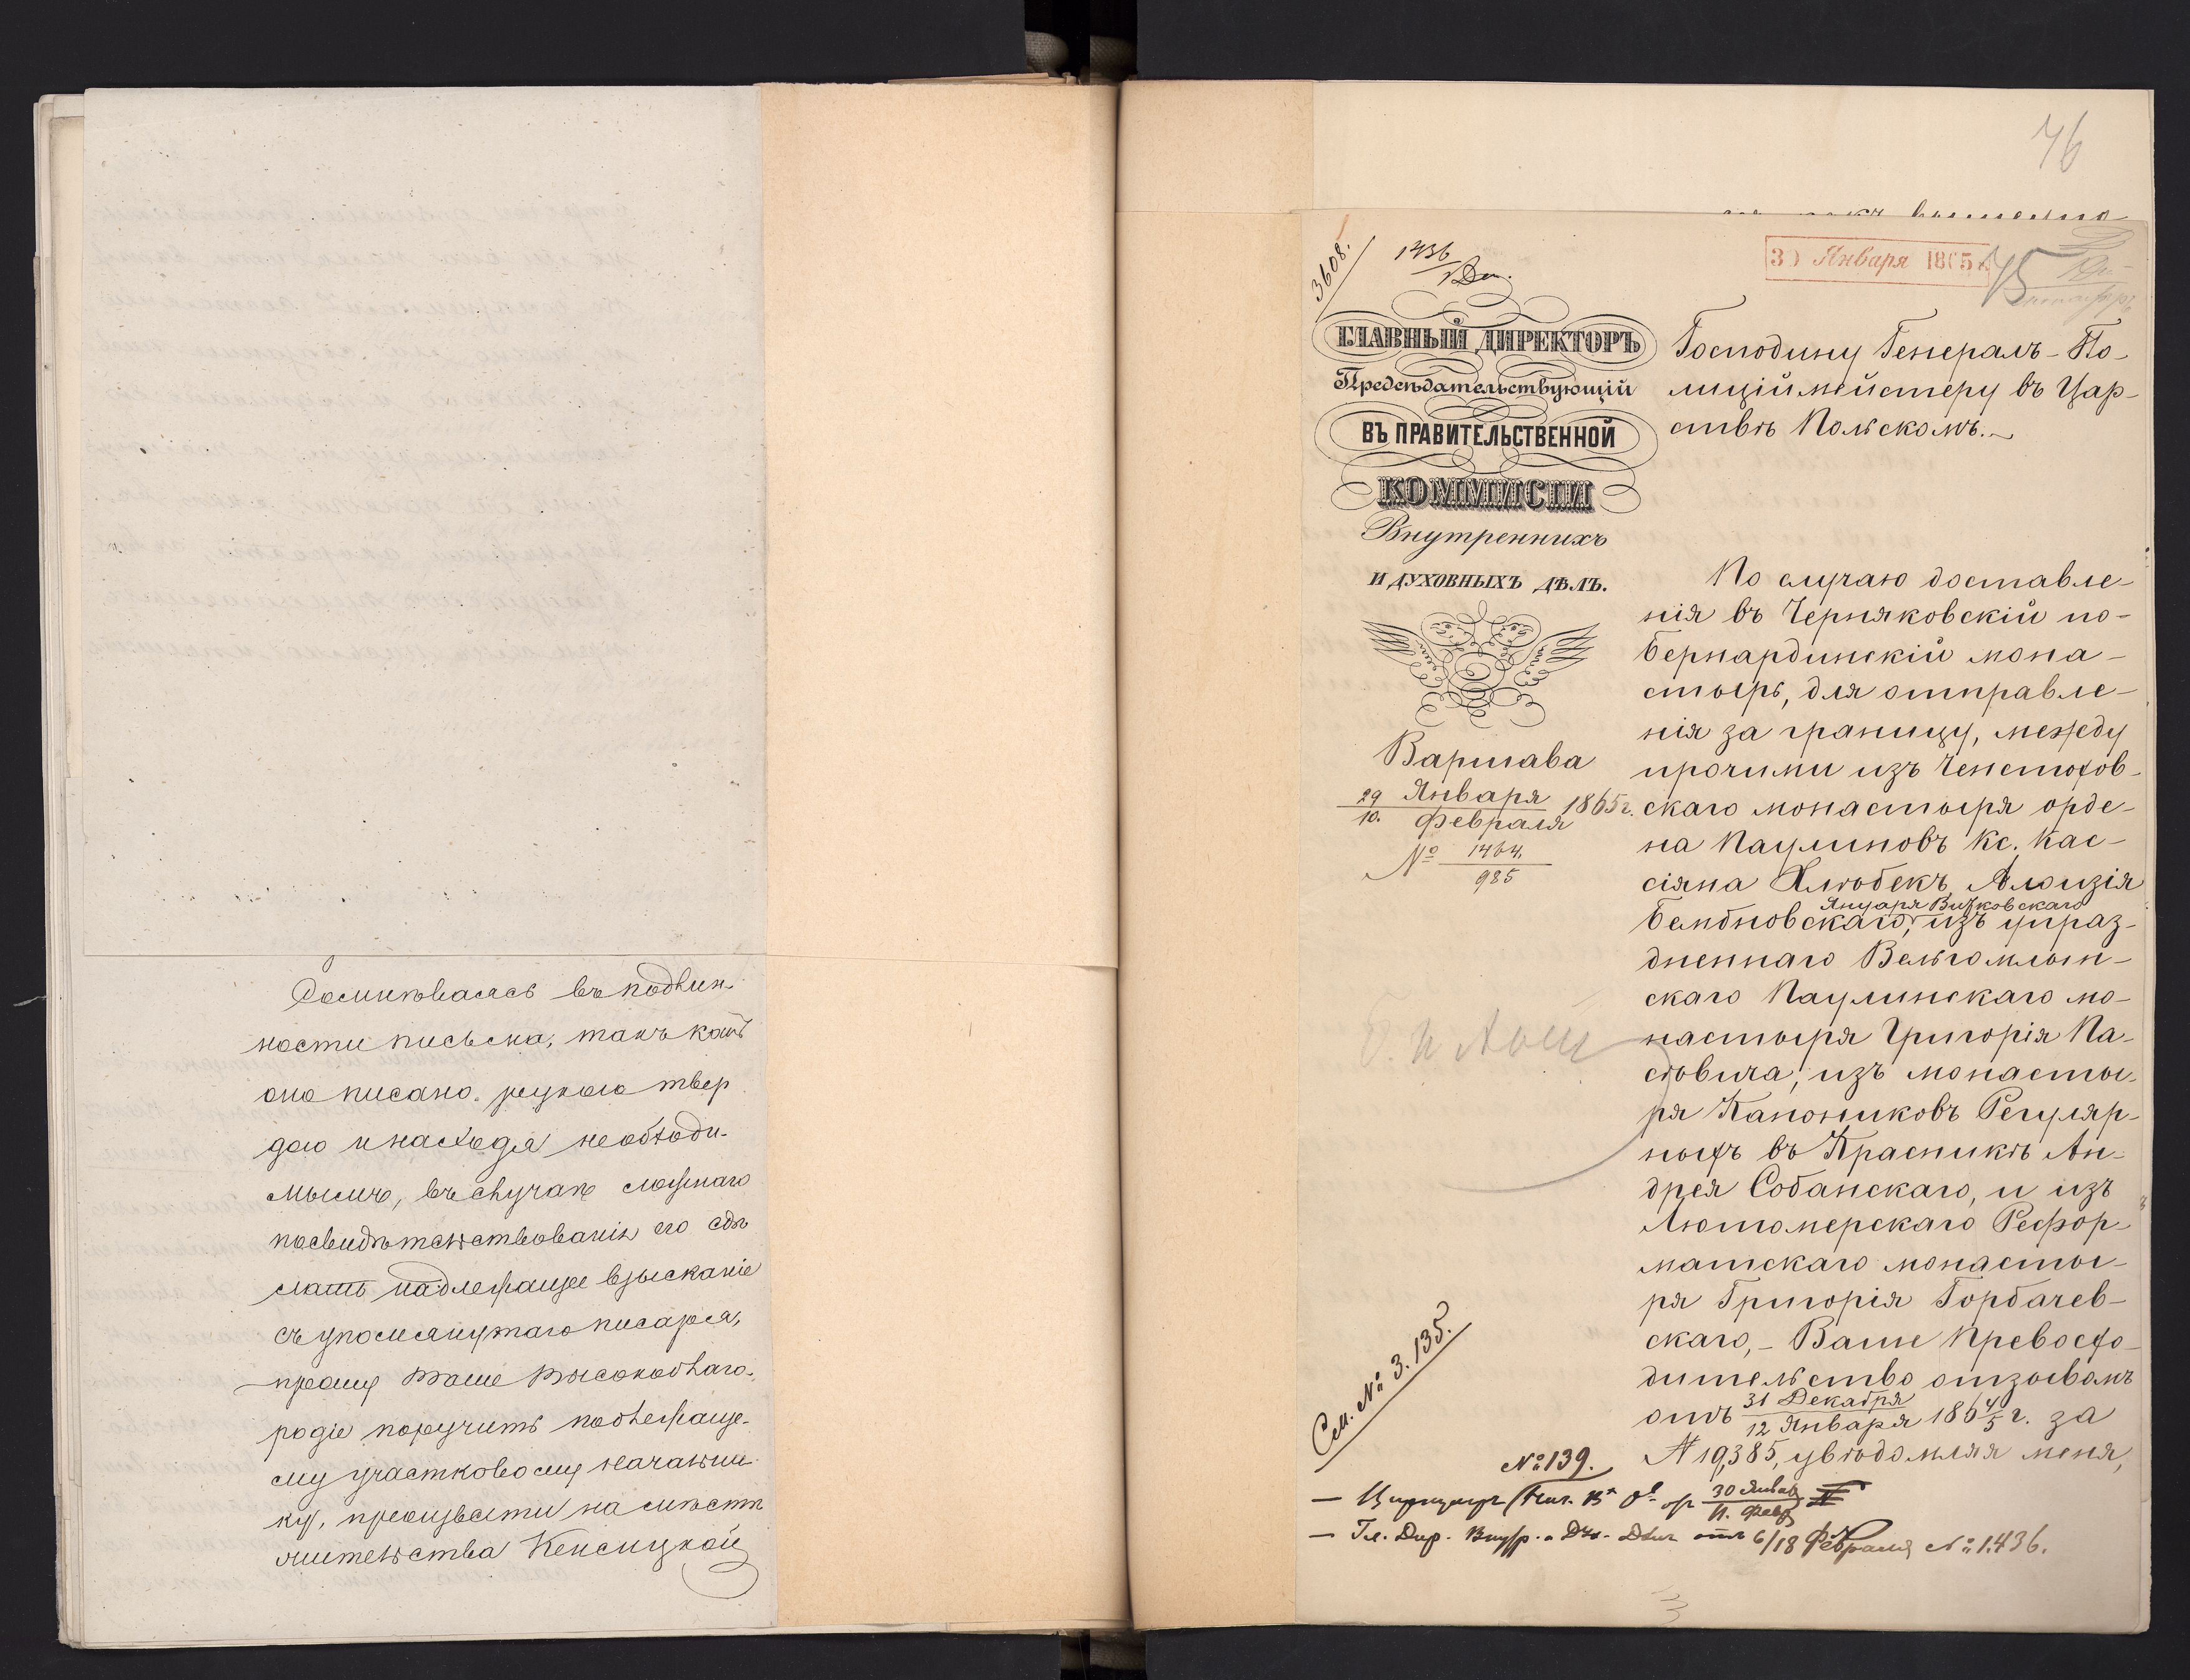 Сомнѣваясь въ подлин-
ности письма, такъ какъ
оно писано рукою твер
дою и находя необходи-
мымъ, въ случаѣ ложнаго
посвидѣтельствованія его сдѣ
лать надлежащее взысканіе
съ упомянутаго писаря,
прошу Ваше Высокоблаго-
родіе поручить подлежаще-
му участковому начальни-
ку, произвести на мѣстѣ
жительства Кенсицкой
76
3608.
1436
30 Января 1865
75
ГЛАВНЫЙ ДИРЕКТОРЪ
Предсѣдательствующій
ВЪ ПРАВИТЕЛЬСТВЕННОЙ
КОММИСІИ
Внутреннихъ
И ДУХОВНЫХЪ ДѢЛЪ.
Варшава
29 Января
10. Февраля 1865 г.
№ 1464.
985
Господину Генералъ-По-
лиціймейстеру въ Цар-
ствѣ Польскомъ.
По случаю доставле-
нія въ Черняковскій по-
бернардинскій мона-
стырь, для отправле-
нія за границу, между
прочими изъ Ченстохов-
скаго монастыря орде-
на Паулиновъ Кс. Кас-
сіяна Хлюбекъ, Алоизія
Януарія Витковскаго
Бембновскаго, изъ упраз-
дненнаго Вельгомлын-
скаго Паулинскаго мо-
настыря Григорія Па-
совича, изъ монасты-
ря Канониковъ Регуляр-
ныхъ въ Красникѣ Ан-
дрея Собанскаго, и изъ
Лютомерскаго Рефор-
матскаго монасты-
ря Григорія Горбачев-
скаго, - Ваше Превосхо-
дительство отзывомъ
отъ 31 Декабря
12 Января 1864/5 г. за
№ 19,385, увѣдомляя меня,
См. № 3.135.
№ 139.
30 Янв
11. Февр
Гл. Дир. Внутр. и Дух. Дѣлъ отъ 6/18 Февраля № 1.436.